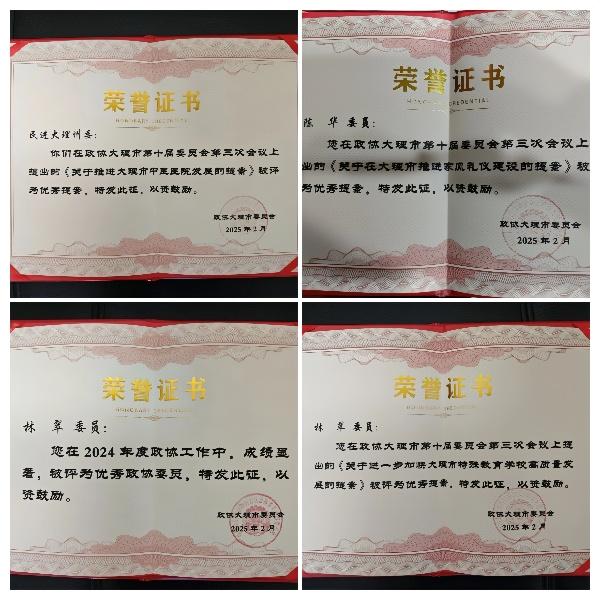 荣誉证书
HONORARY CREDENTIAL
民进大理州委：
你们在政协大理市第十届委员会第三次会议上
提出的《关于推进大理市中医医院发展的提案》被评
为优秀提案，特发此证，以资鼓励。
政协大理市委员会
2025 年 2 月
荣誉证书
HONORARY CREDENTIAL
陈 华 委员：
您在政协大理市第十届委员会第三次会议上
提出的《关于在大理市推进家风礼仪建设的提案》被
评为优秀提案，特发此证，以资鼓励。
政协大理市委员会
2025 年 2 月
荣誉证书
HONORARY CREDENTIAL
林 翠 委员：
您在 2024 年度政协工作中，成绩显
著，被评为优秀政协委员，特发此证，以
资鼓励。
政协大理市委员会
2025 年 2 月
荣誉证书
HONORARY CREDENTIAL
林 翠 委员：
您在政协大理市第十届委员会第三次会议上提
出的《关于进一步加强大理市特殊教育学校高质量发
展的提案》被评为优秀提案，特发此证，以资鼓励。
政协大理市委员会
2025 年 2 月